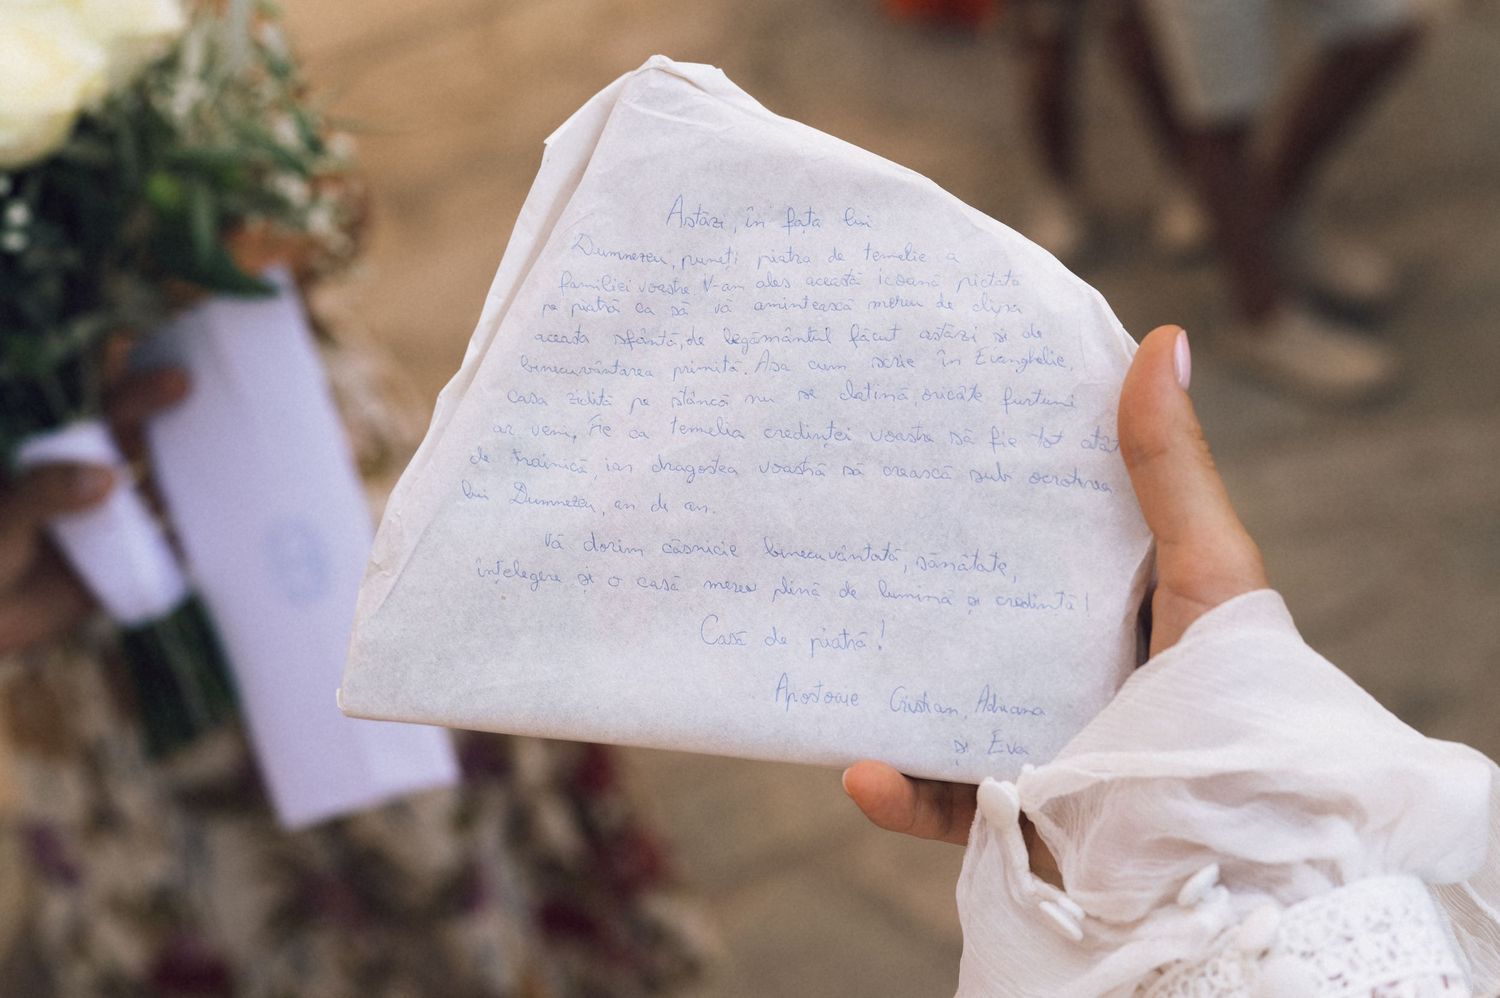 Astăzi, în fața lui
Dumnezeu, puneți piatra de temelie a
familiei voastre. V-am ales această icoană pictată
pe piatră ca să vă amintească mereu de clipa
aceasta sfântă, de legământul făcut astăzi și de
binecuvântarea primită. Așa cum scrie în Evanghelie,
casa zidită pe stâncă nu se clatină, oricâte furtuni
ar veni, fie ca temelia credinței voastre să fie tot atât
de trainică, iar dragostea voastră să crească sub ocrotirea
lui Dumnezeu, an de an.
Vă dorim căsnicie binecuvântată, sănătate,
înțelegere și o casă mereu plină de lumină și credință!
Casă de piatră!
Apostoaie Cristian, Adriana
și Eva